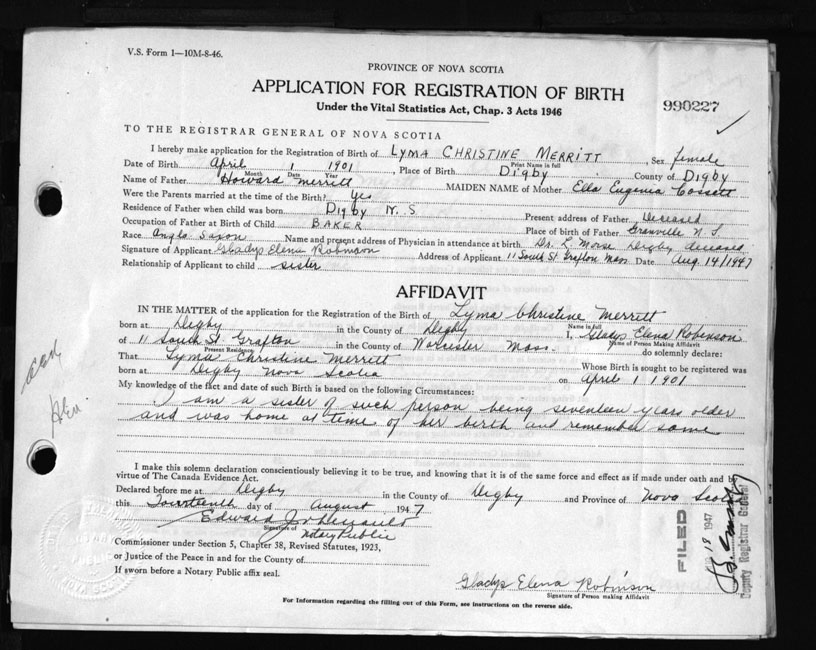 V.S. Form 1—10M-8-46.
PROVINCE OF NOVA SCOTIA
APPLICATION FOR REGISTRATION OF BIRTH
Under the Vital Statistics Act, Chap. 3 Acts 1946
990227
TO THE REGISTRAR GENERAL OF NOVA SCOTIA
I hereby make application for the Registration of Birth of LYMA CHRISTINE MERRITT, Sex female
Print Name in full
Date of Birth April 1 1901, Place of Birth Digby County of Digby
Month Date Year
Name of Father Howard Merritt MAIDEN NAME of Mother Ella Eugenia Cossett
Were the Parents married at the time of the Birth? Yes
Residence of Father when child was born Digby N.S Present address of Father Deceased
Occupation of Father at Birth of Child BAKER Place of birth of Father Granville N.S
Race Anglo Saxon Name and present address of Physician in attendance at birth Dr. L Morse Digby deceased
Signature of Applicant Gladys Elena Robinson Address of Applicant 11 South St Grafton Mass Date Aug 14/1947
Relationship of Applicant to child sister
AFFIDAVIT
IN THE MATTER of the application for the Registration of Birth of Lyma Christine Merritt
Name in full
born at Digby in the County of Digby I, Gladys Elena Robinson
Name of Person Making Affidavit
of 11 South St Grafton in the County of Worcester Mass. do solemnly declare:
Present Residence
That Lyma Christine Merritt Whose Birth is sought to be registered was
born at Digby Nova Scotia on April 1 1901
My knowledge of the fact and date of such Birth is based on the following Circumstances:
I am a sister of such person being seventeen years older
and was home at time of her berth and remember same
I make this solemn declaration conscientiously believing it to be true, and knowing that it is of the same force and effect as if made under oath and by
virtue of The Canada Evidence Act.
Declared before me at Digby in the County of Digby and Province of Nova Scotia
this Fourteenth day of August, 1947
Edward
Signature of
Notary Public
Commissioner under Section 5, Chapter 38, Revised Statutes, 1923,
or Justice of the Peace in and for County of
If sworn before a Notary Public affix seal.
FILED
18 1947
Deputy Registrar General
Gladys Elena Robinson
Signature of Person making Affidavit
For Information regarding the filling out of this Form, see instructions on the reverse side.